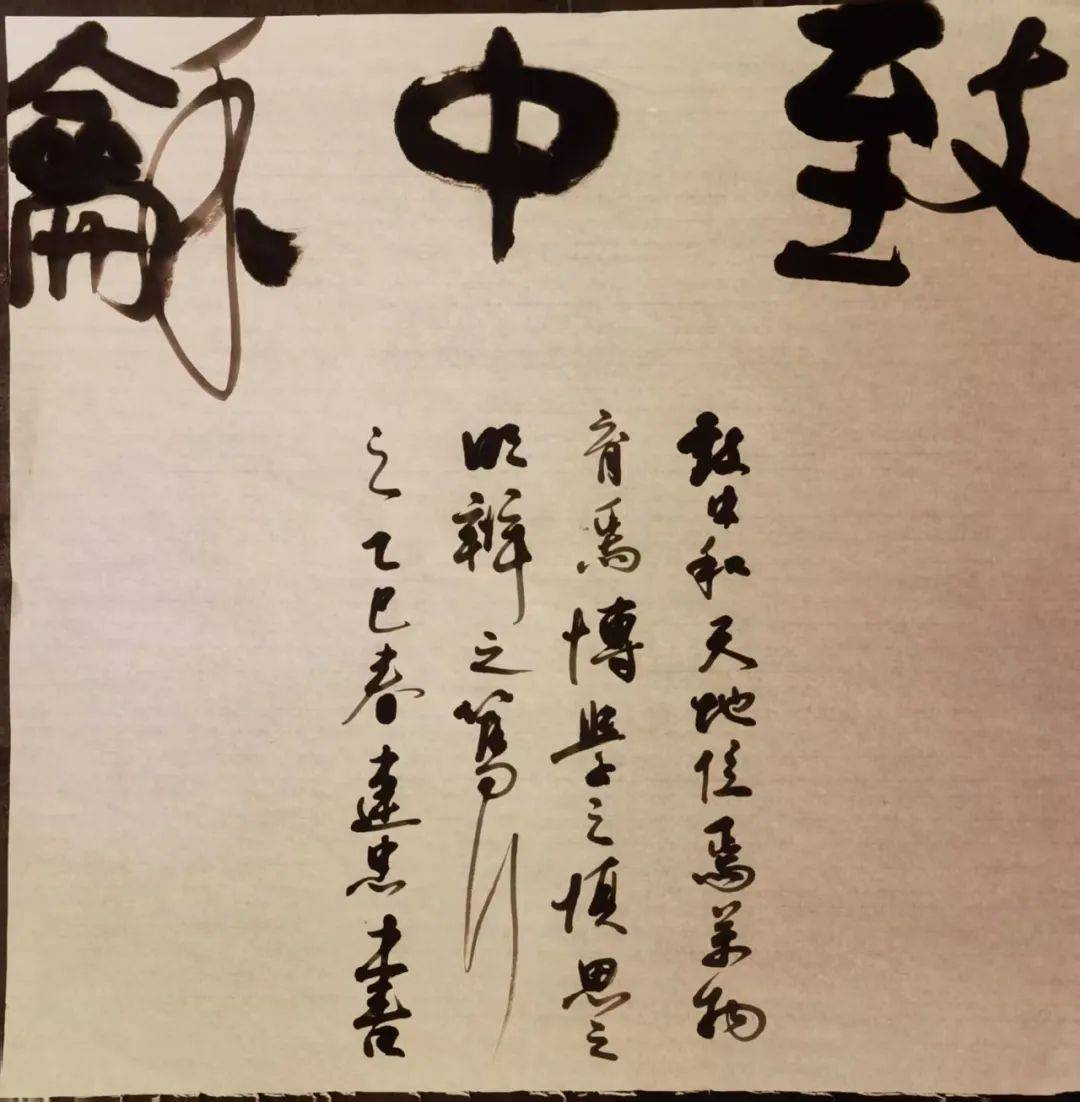 致中龢
致中和天地位焉萬物
育焉博學之慎思之
明辨之篤行
之乙巳春建忠書